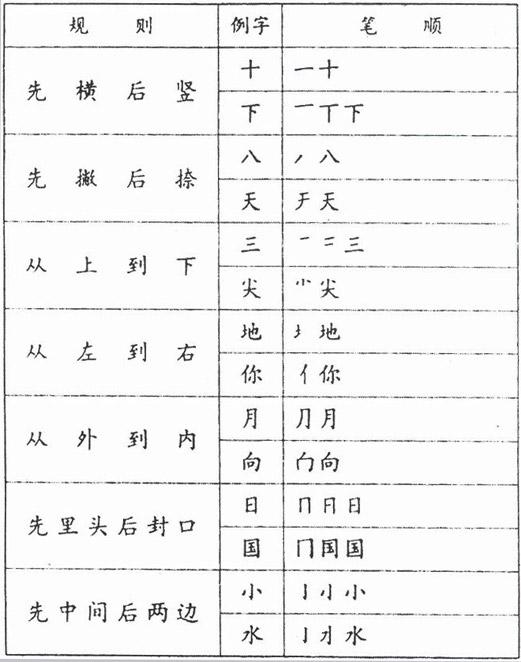 规则 例字 笔顺
先横后竖
十 一 十
下 一 丅 下
先撇后捺
八 丿 八
天 天
从上到下
三 一 二 三
尖 ⺌ 尖
从左到右
地 地
你 亻 你
从外到内
月 ⺆ 月
向 向
先里头后封口
日 冂 日
国 冂 国
先中间后两边
小 亅 小
水 亅 水